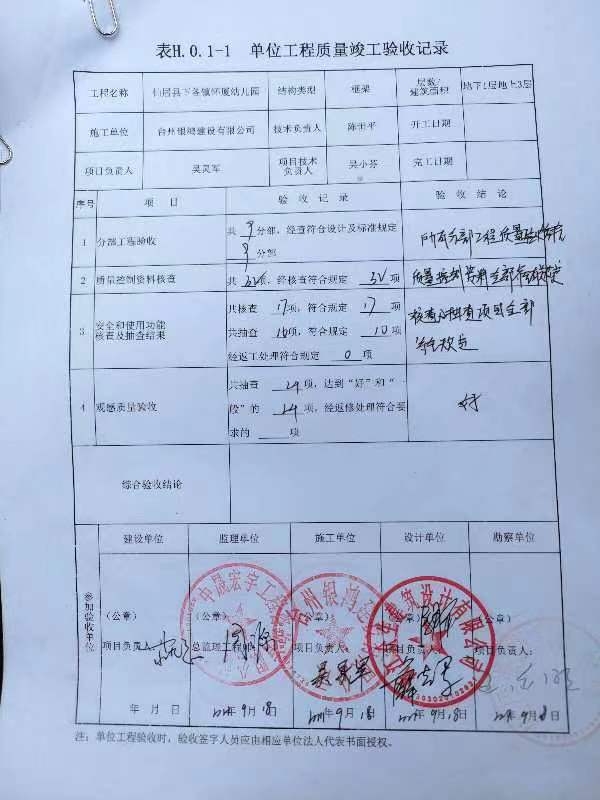 表H.0.1-1 单位工程质量竣工验收记录
工程名称 仙居县下各镇怀厦幼儿园 结构类型 框架 层数/建筑面积 地下1层地上3层
施工单位 台州银鸿建设有限公司 技术负责人 开工日期
项目负责人 吴灵军 项目技术负责人 吴小芬 完工日期
序号 项目 验收记录 验收结论
1 分部工程验收 共 9 分部,经查符合设计及标准规定 9 分部
2 质量控制资料核查 共 34 项,经核查符合规定 34 项 质量控制资料全部
3 安全和使用功能核查及抽查结果
共核查 17 项,符合规定 17 项
共抽查 10 项,符合规定 10 项
经返工处理符合规定 0 项
核查及抽查项目全部
4 观感质量验收
共抽查 24 项,达到“好”和“一般”的 24 项,经返修处理符合要求的 项
好
综合验收结论
参加验收单位
建设单位 监理单位 施工单位 设计单位 勘察单位
(公章) (公章) (公章) (公章) (公章)
项目负责人: 总监理工程师: 项目负责人: 项目负责人: 项目负责人:
吴灵军
年 月 日 年9月18日 年9月18日 年9月18日 年9月8日
注:单位工程验收时,验收签字人员应由相应单位法人代表书面授权。